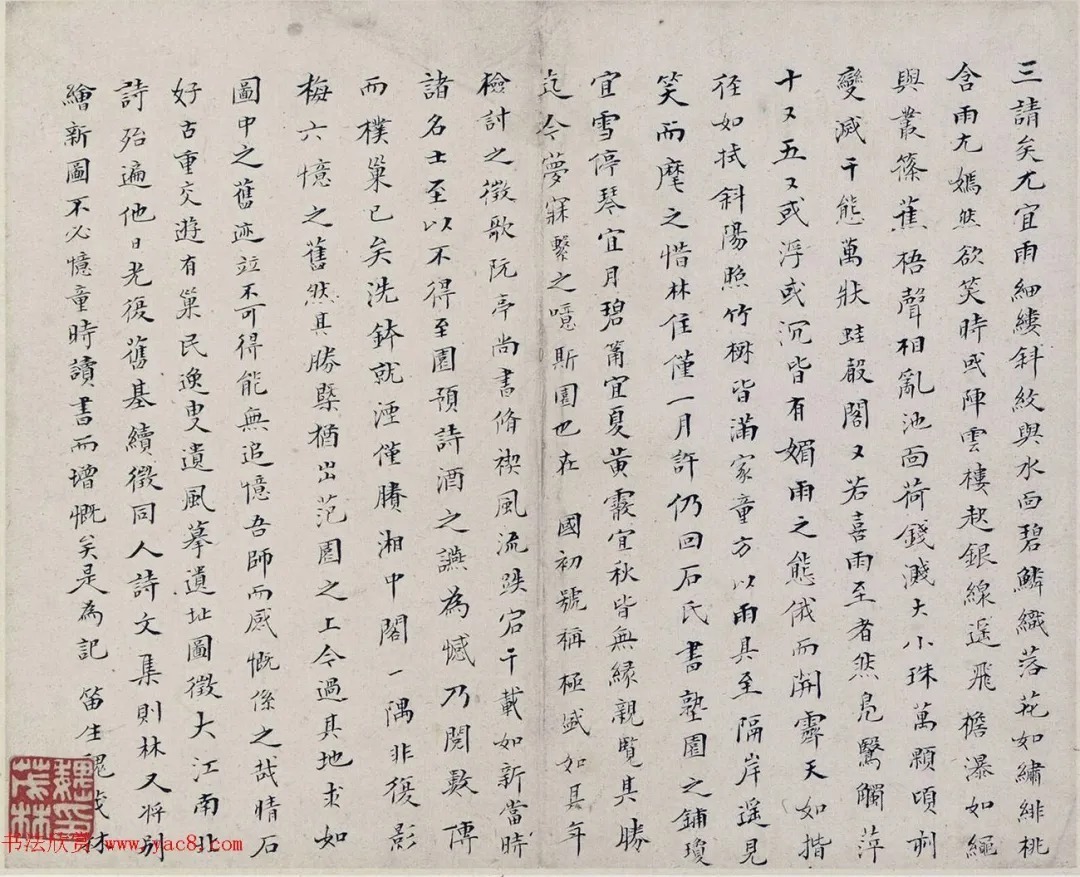 三請矣尤宜雨細縷斜紋與水面碧鱗織落花如繡緋桃
含雨尤嫣然欲笑時或陣雲樓起銀線遥飛檐瀑如繩
與叢篠蕉梧聲相亂池面荷錢濺大小珠萬顆頃刻
變滅千態萬狀蛙鼓閣又若喜雨至者然鳧鷖觸萍
十又五又或浮或沉皆有媚雨之態俄而開霽天如揩
径如拭斜陽照竹樹皆滿家童方以雨具至隔岸遥見
笑而麾之惜林住僅一月許仍回石氏書塾園之鋪瓊
宜雪停琴宜月碧筩宜夏黄霰宜秋皆無緣親覽其勝
迄今夢寐繫之噫斯園也在 國初號稱極盛如其年
檢討之徵歌阮亭尚書脩禊風流跌宕千載如新當時
諸名士至以不得至園預詩酒之讌為憾乃閱數傳
而樸巢已矣洗鉢就湮僅賸湘中閣一隅非復影
梅六憶之舊然其勝槩猶出范園之上今過其地求如
圖中之舊迹竝不可得能無追憶吾師而感慨係之哉晴石
好古重交遊有巢民逸叟遺風摹遺址圖徵大江南北
詩殆遍他日光復舊基續徵同人詩文集則林又將别
繪新圖不必憶童時讀書而增慨矣是為記 笛生魏茂林
魏茂林印
书法欣赏 www.yac8.com